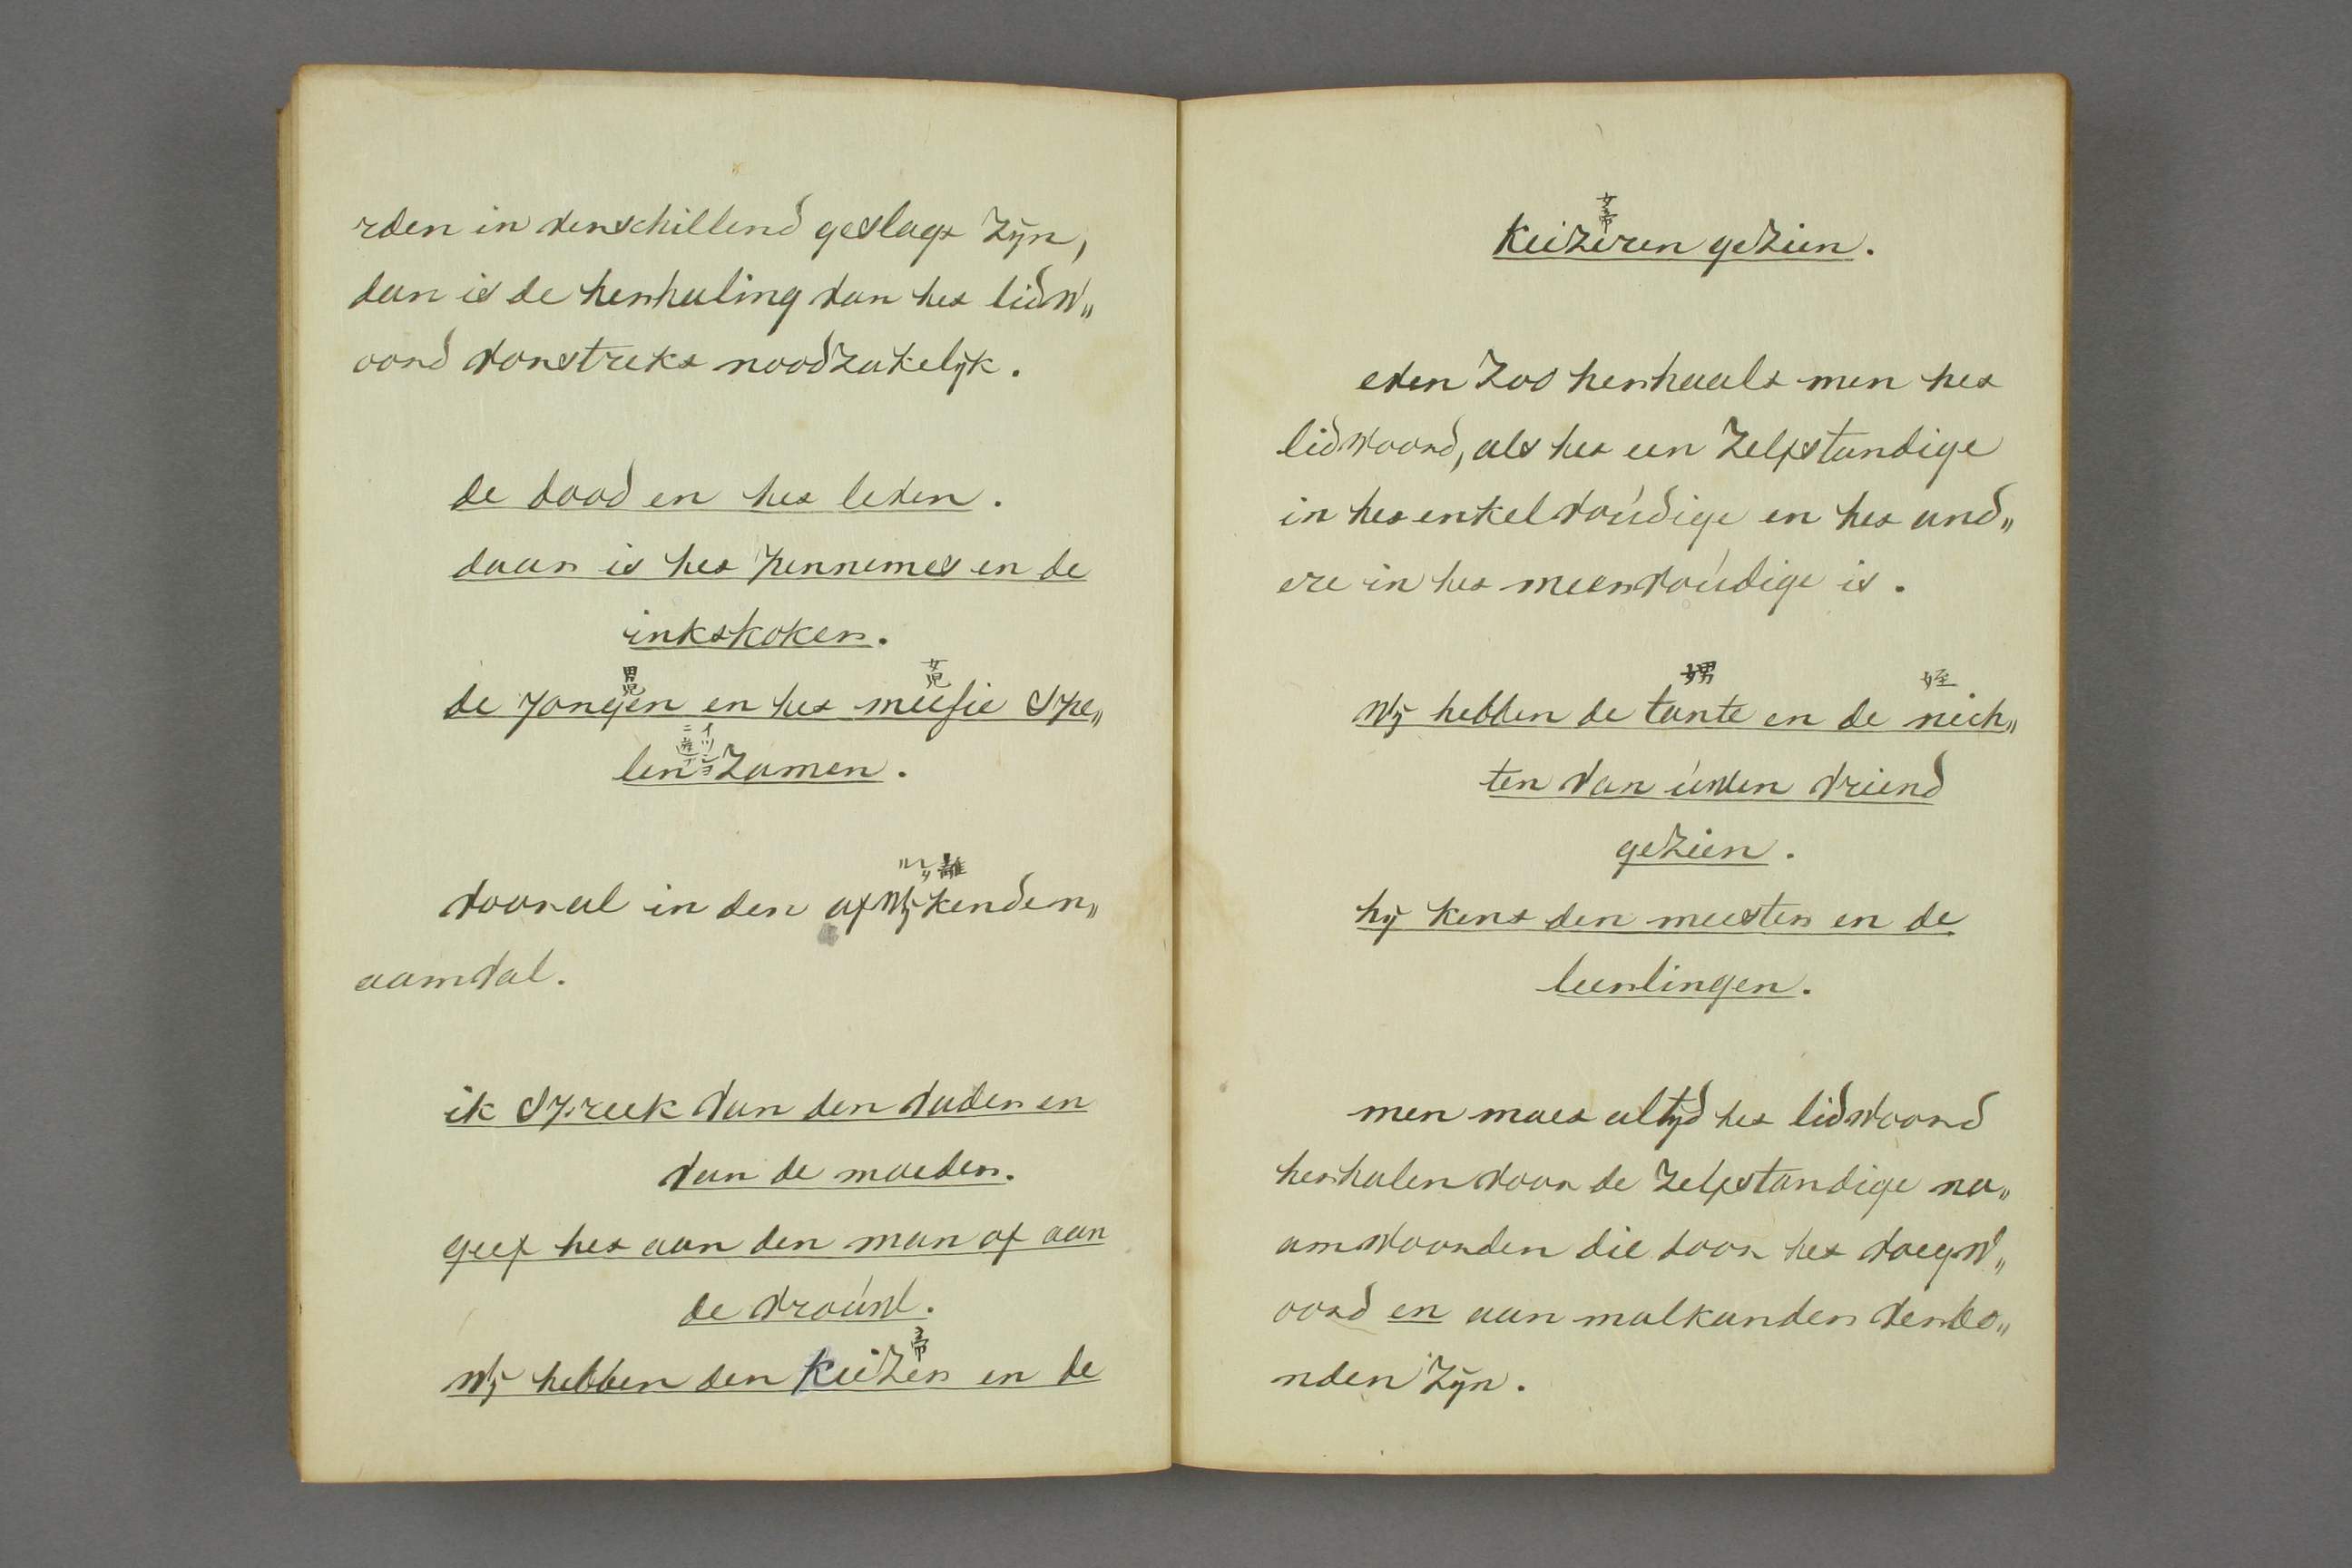 rden in verschillend geslagt zijn,
dan is de herhaling van het lidw„
oord volstrekt noodzakelijk.
de dood en het leven.
daar is het pennemes en de
inktkoker.
男児 女児
de jongen en het meisje spe„
イツシヨニ遊ブ
len zamen.
離ルヽ
vooral in den afwijkenden„
aamval.
ik spreek van den vader en
van de moeder.
geef het aan den man of aan
de vroúw.
帝
wij hebben den keizer en de
女帝
keizerin gezien.
even zoo herhaalt men het
lidwoord, als het een zelfstandige
in het enkelvoúdige en het and„
ere in het meervoúdige is.
甥 姪
wij hebben de tante en de nich„
ten van úwen vriend
gezien.
hij kent den meester en de
leerlingen.
men moet altijd het lidwoord
herhalen voor de zelfstandige na„
amwoorden die door het voegw„
oord en aan malkander verbo„
nden zijn.